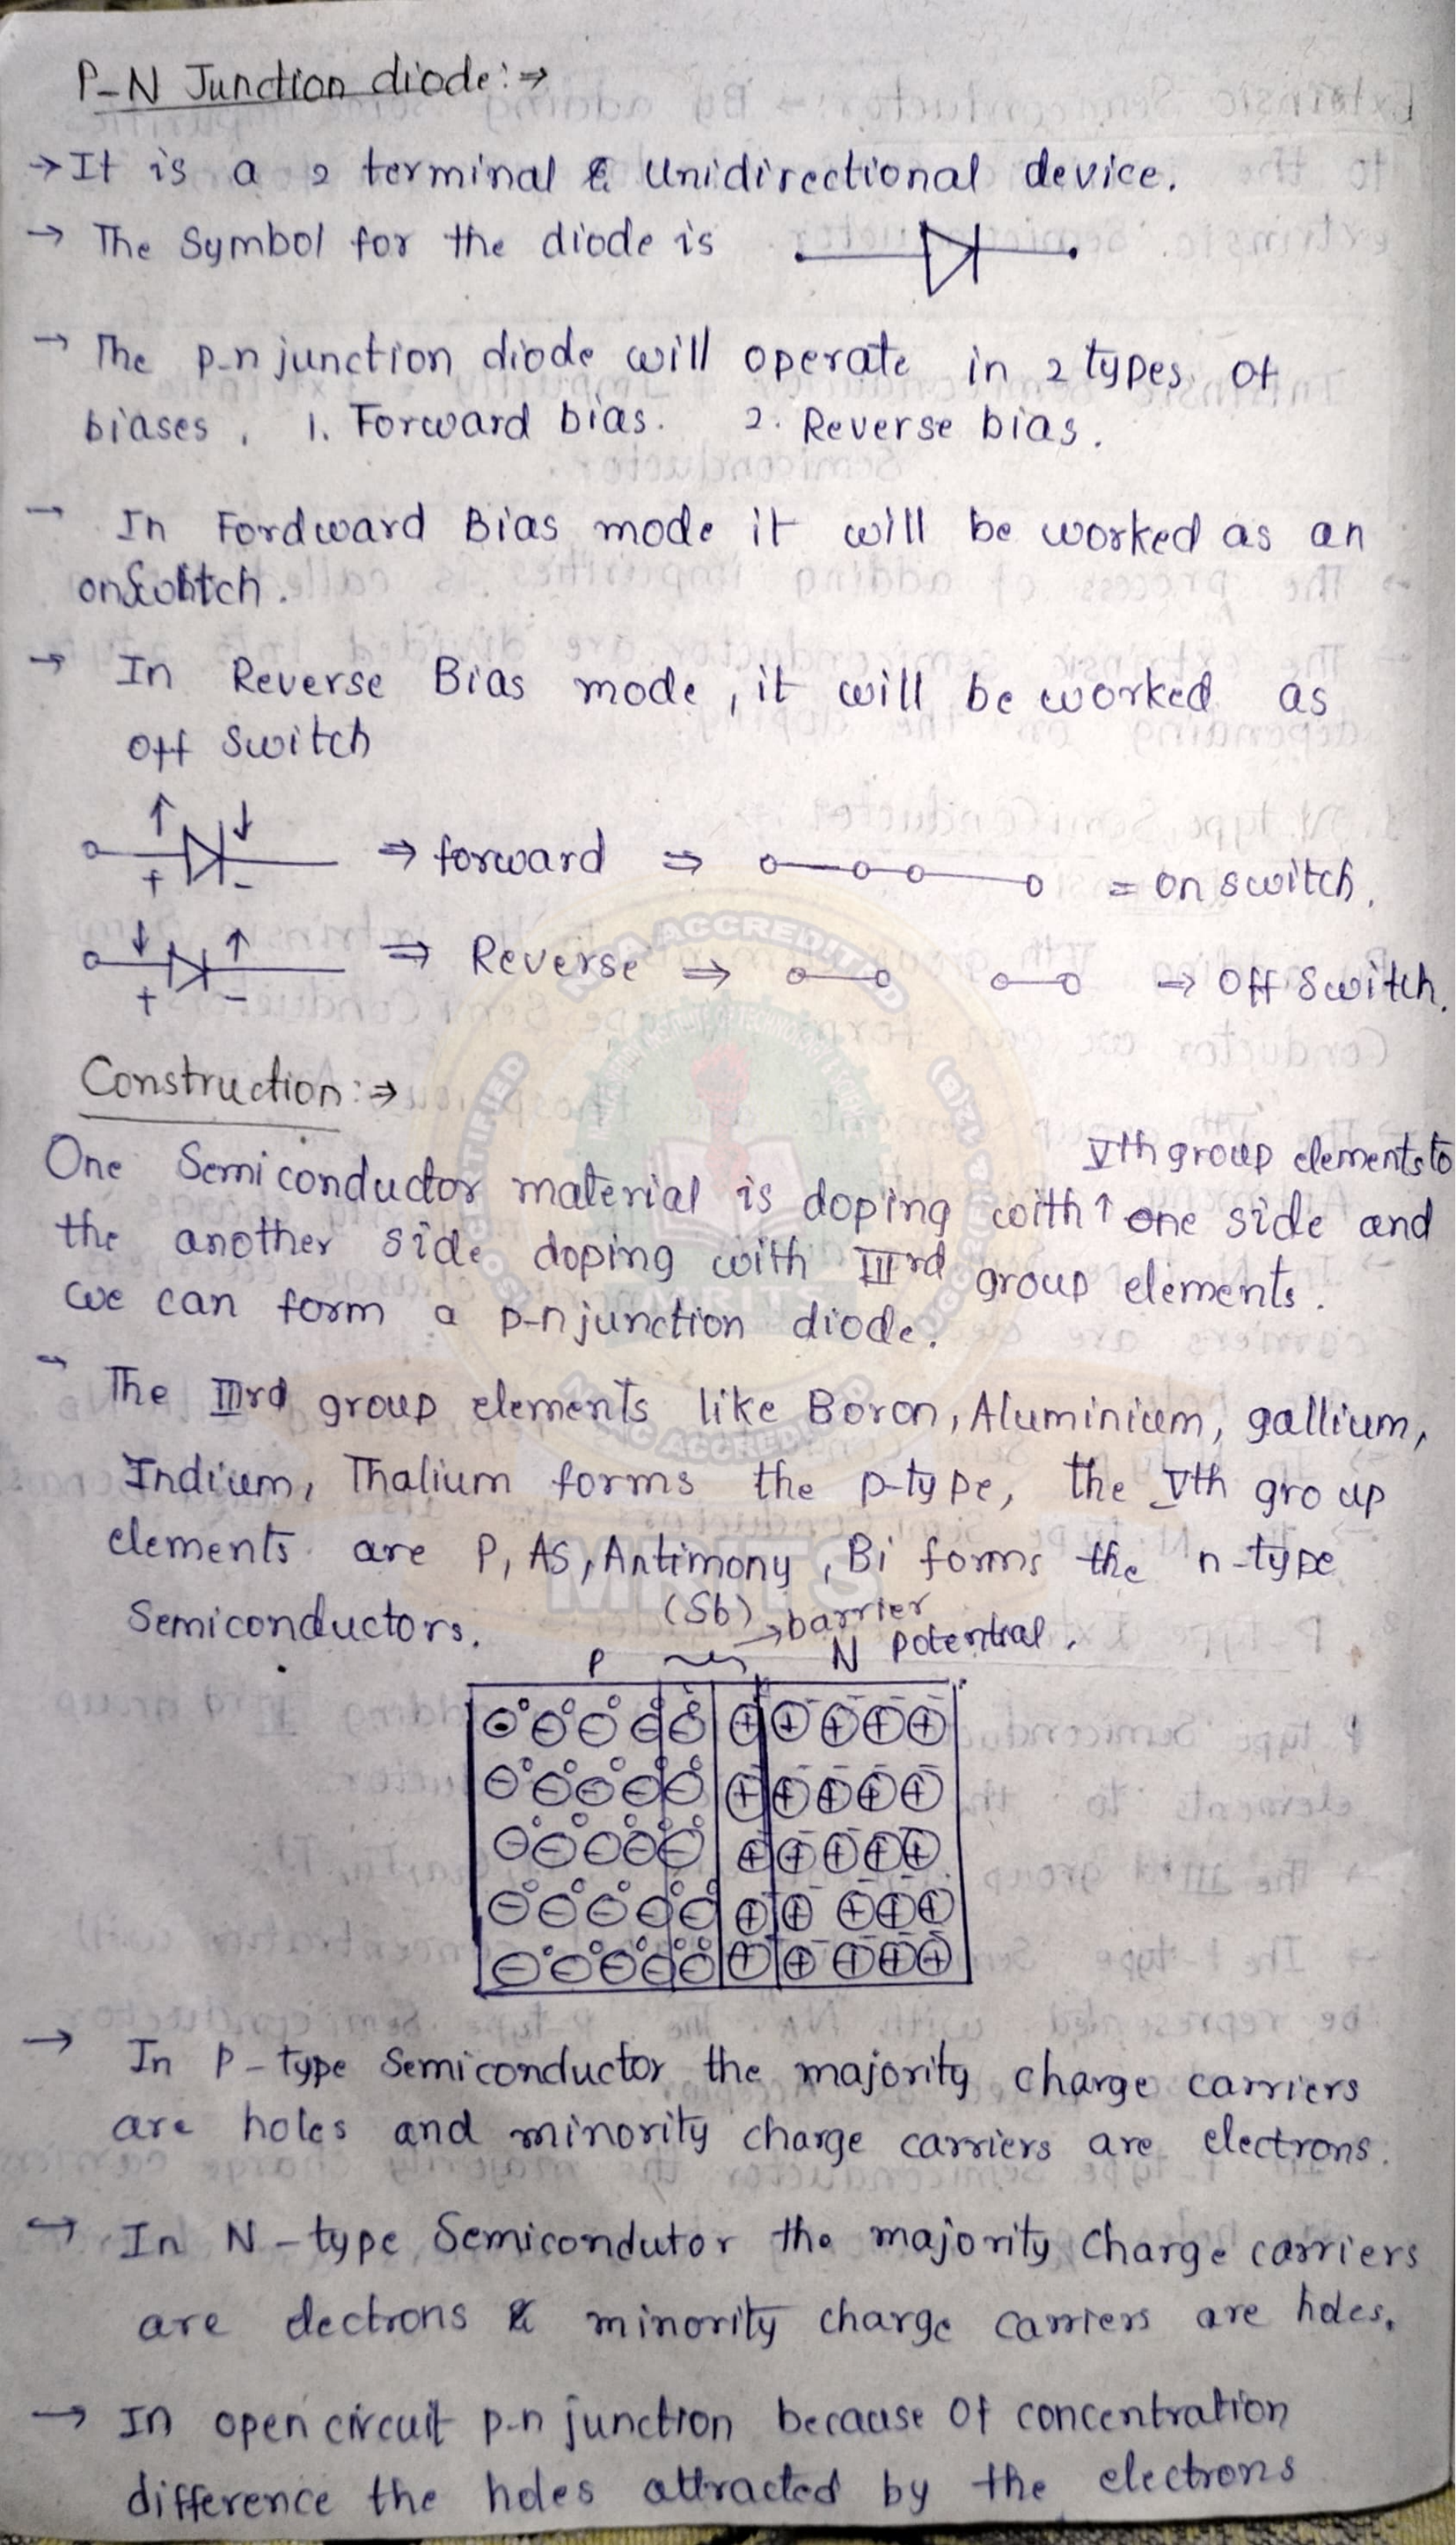 P-N Junction diode:⇒
→ It is a 2 terminal & Unidirectional device.
→ The Symbol for the diode is
→ The p-n junction diode will operate in 2 types of
biases, 1. Forward bias. 2. Reverse bias.
→ In Fordward Bias mode it will be worked as an
on Switch.
→ In Reverse Bias mode, it will be worked as
off Switch
+ - ⇒ forward ⇒ = on switch.
+ - ⇒ Reverse ⇒ ⇒ Off Switch.
Construction:⇒
Vth group elements to
One Semiconductor material is doping with ↑ one side and
the another side doping with IIIrd group elements.
we can form a p-n junction diode.
→ The IIIrd group elements like Boron, Aluminium, gallium,
Indium, Thalium forms the p-type, the Vth group
elements are P, As, Antimony, Bi forms the n-type
(Sb) → barrier
Semiconductors.
P N potential.
→ In P-type Semiconductor the majority charge carriers
are holes and minority charge carriers are electrons.
→ In N-type Semicondutor the majority charge carriers
are electrons & minority charge carriers are holes.
→ In open circuit p-n junction because of concentration
difference the holes attracted by the electrons
NBA ACCREDITED
MRITS
NAAC ACCREDITED
MRITS